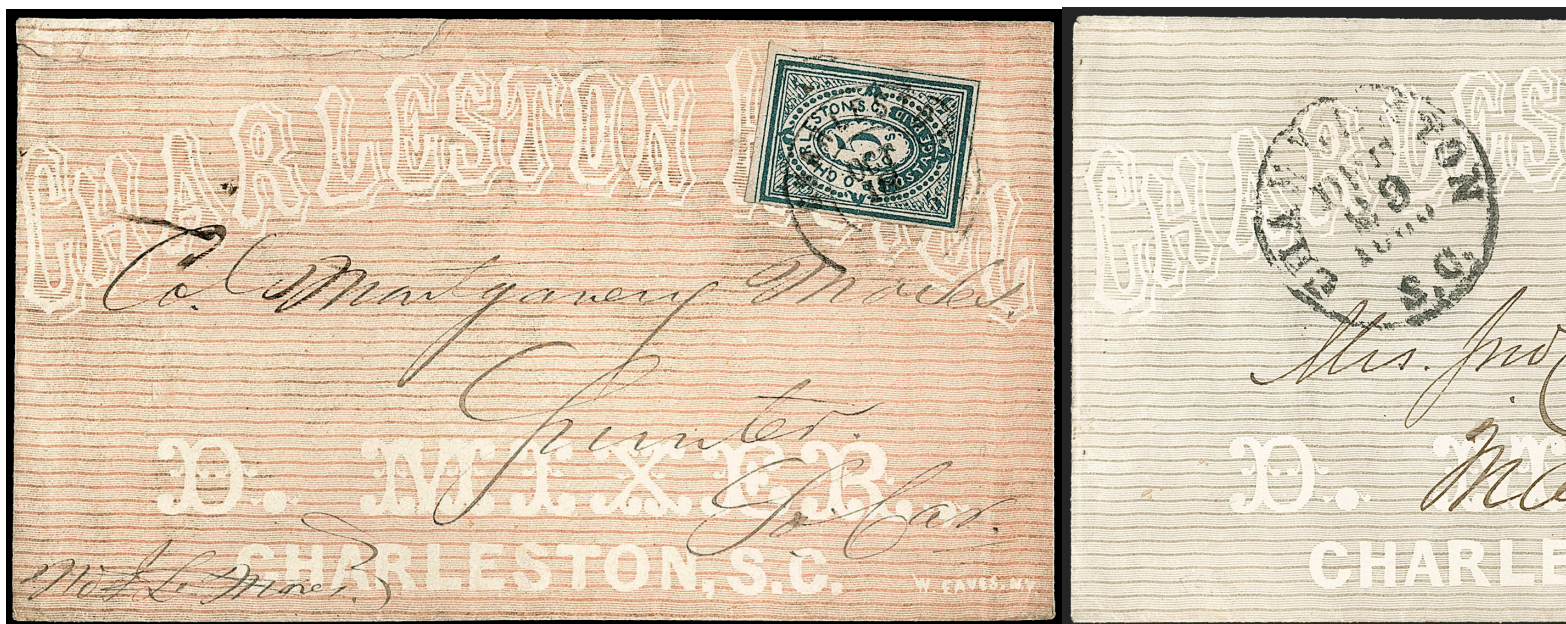 CHARLESTON HOTEL
P.O. CHARLESTON, S.C.
POSTAGE PAID
5
Col. Montgomery Moses.
Sumter.
So. Car.
D. MIXER.
CHARLESTON, S.C.
W. EAVES, N.Y.
CHARLES
CHARLESTON
DEC
29
1860
S.C.
Mrs. Jno
D. M
CHARLE